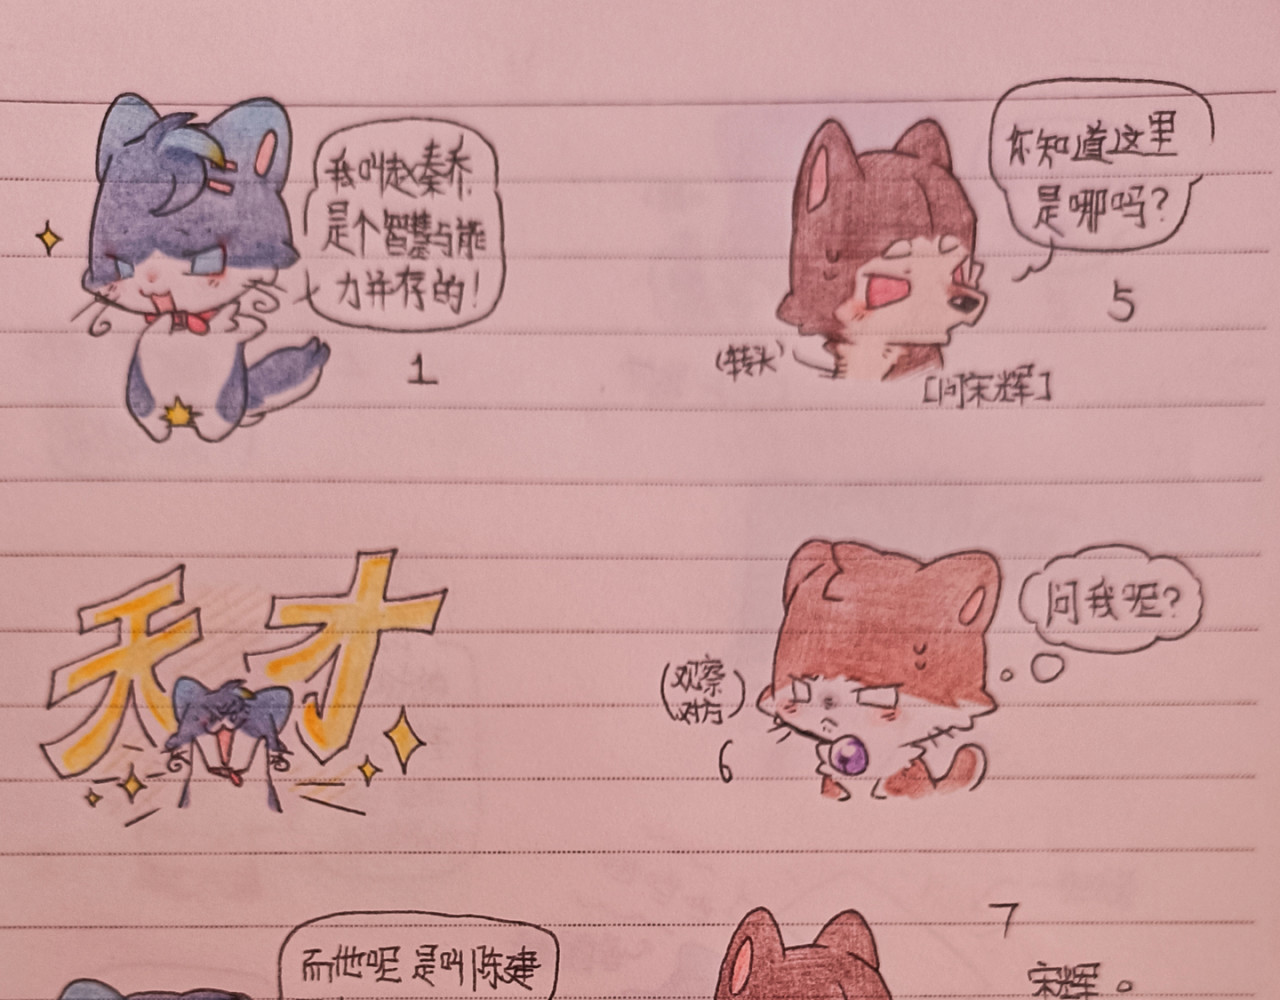 我叫赵秦乔,
是个智慧与能
力并存的!
1
天才
而他呢 是叫陈建
你知道这里
是哪吗?
5
(转头)
[问宋辉]
问我呢?
(观察
对方)
6
7
宋辉。